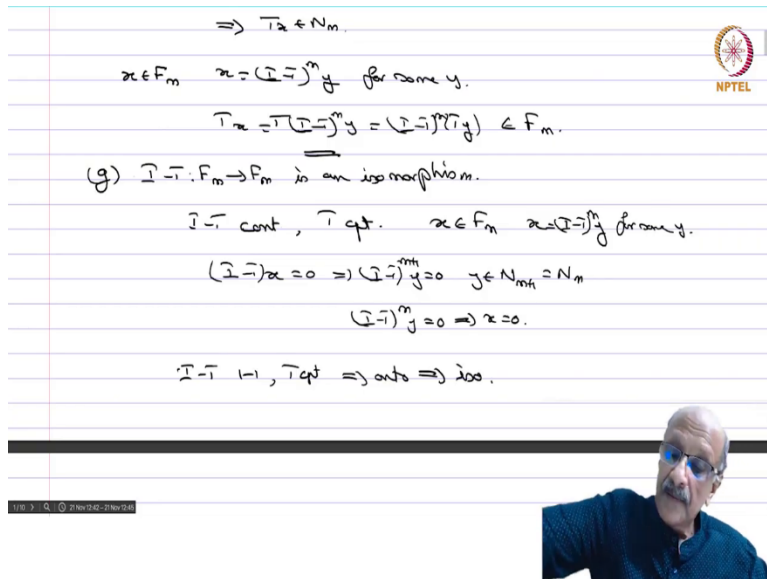 ⇒ Tx ∈ N_m.
x ∈ F_m   x = (I-T)^m y for some y.
Tx = T(I-T)^m y = (I-T)^m (Ty) ∈ F_m.
NPTEL
(g) I-T : F_m → F_m is an isomorphism.
I-T cont, T cpt.   x ∈ F_m   x = (I-T)^m y for some y.
(I-T)x = 0 ⇒ (I-T)^{m+1} y = 0   y ∈ N_{m+1} = N_m
(I-T)^m y = 0 ⇒ x = 0.
I-T 1-1, T cpt ⇒ onto ⇒ iso.
1/10 > 21 Nov 12:42 - 21 Nov 12:45